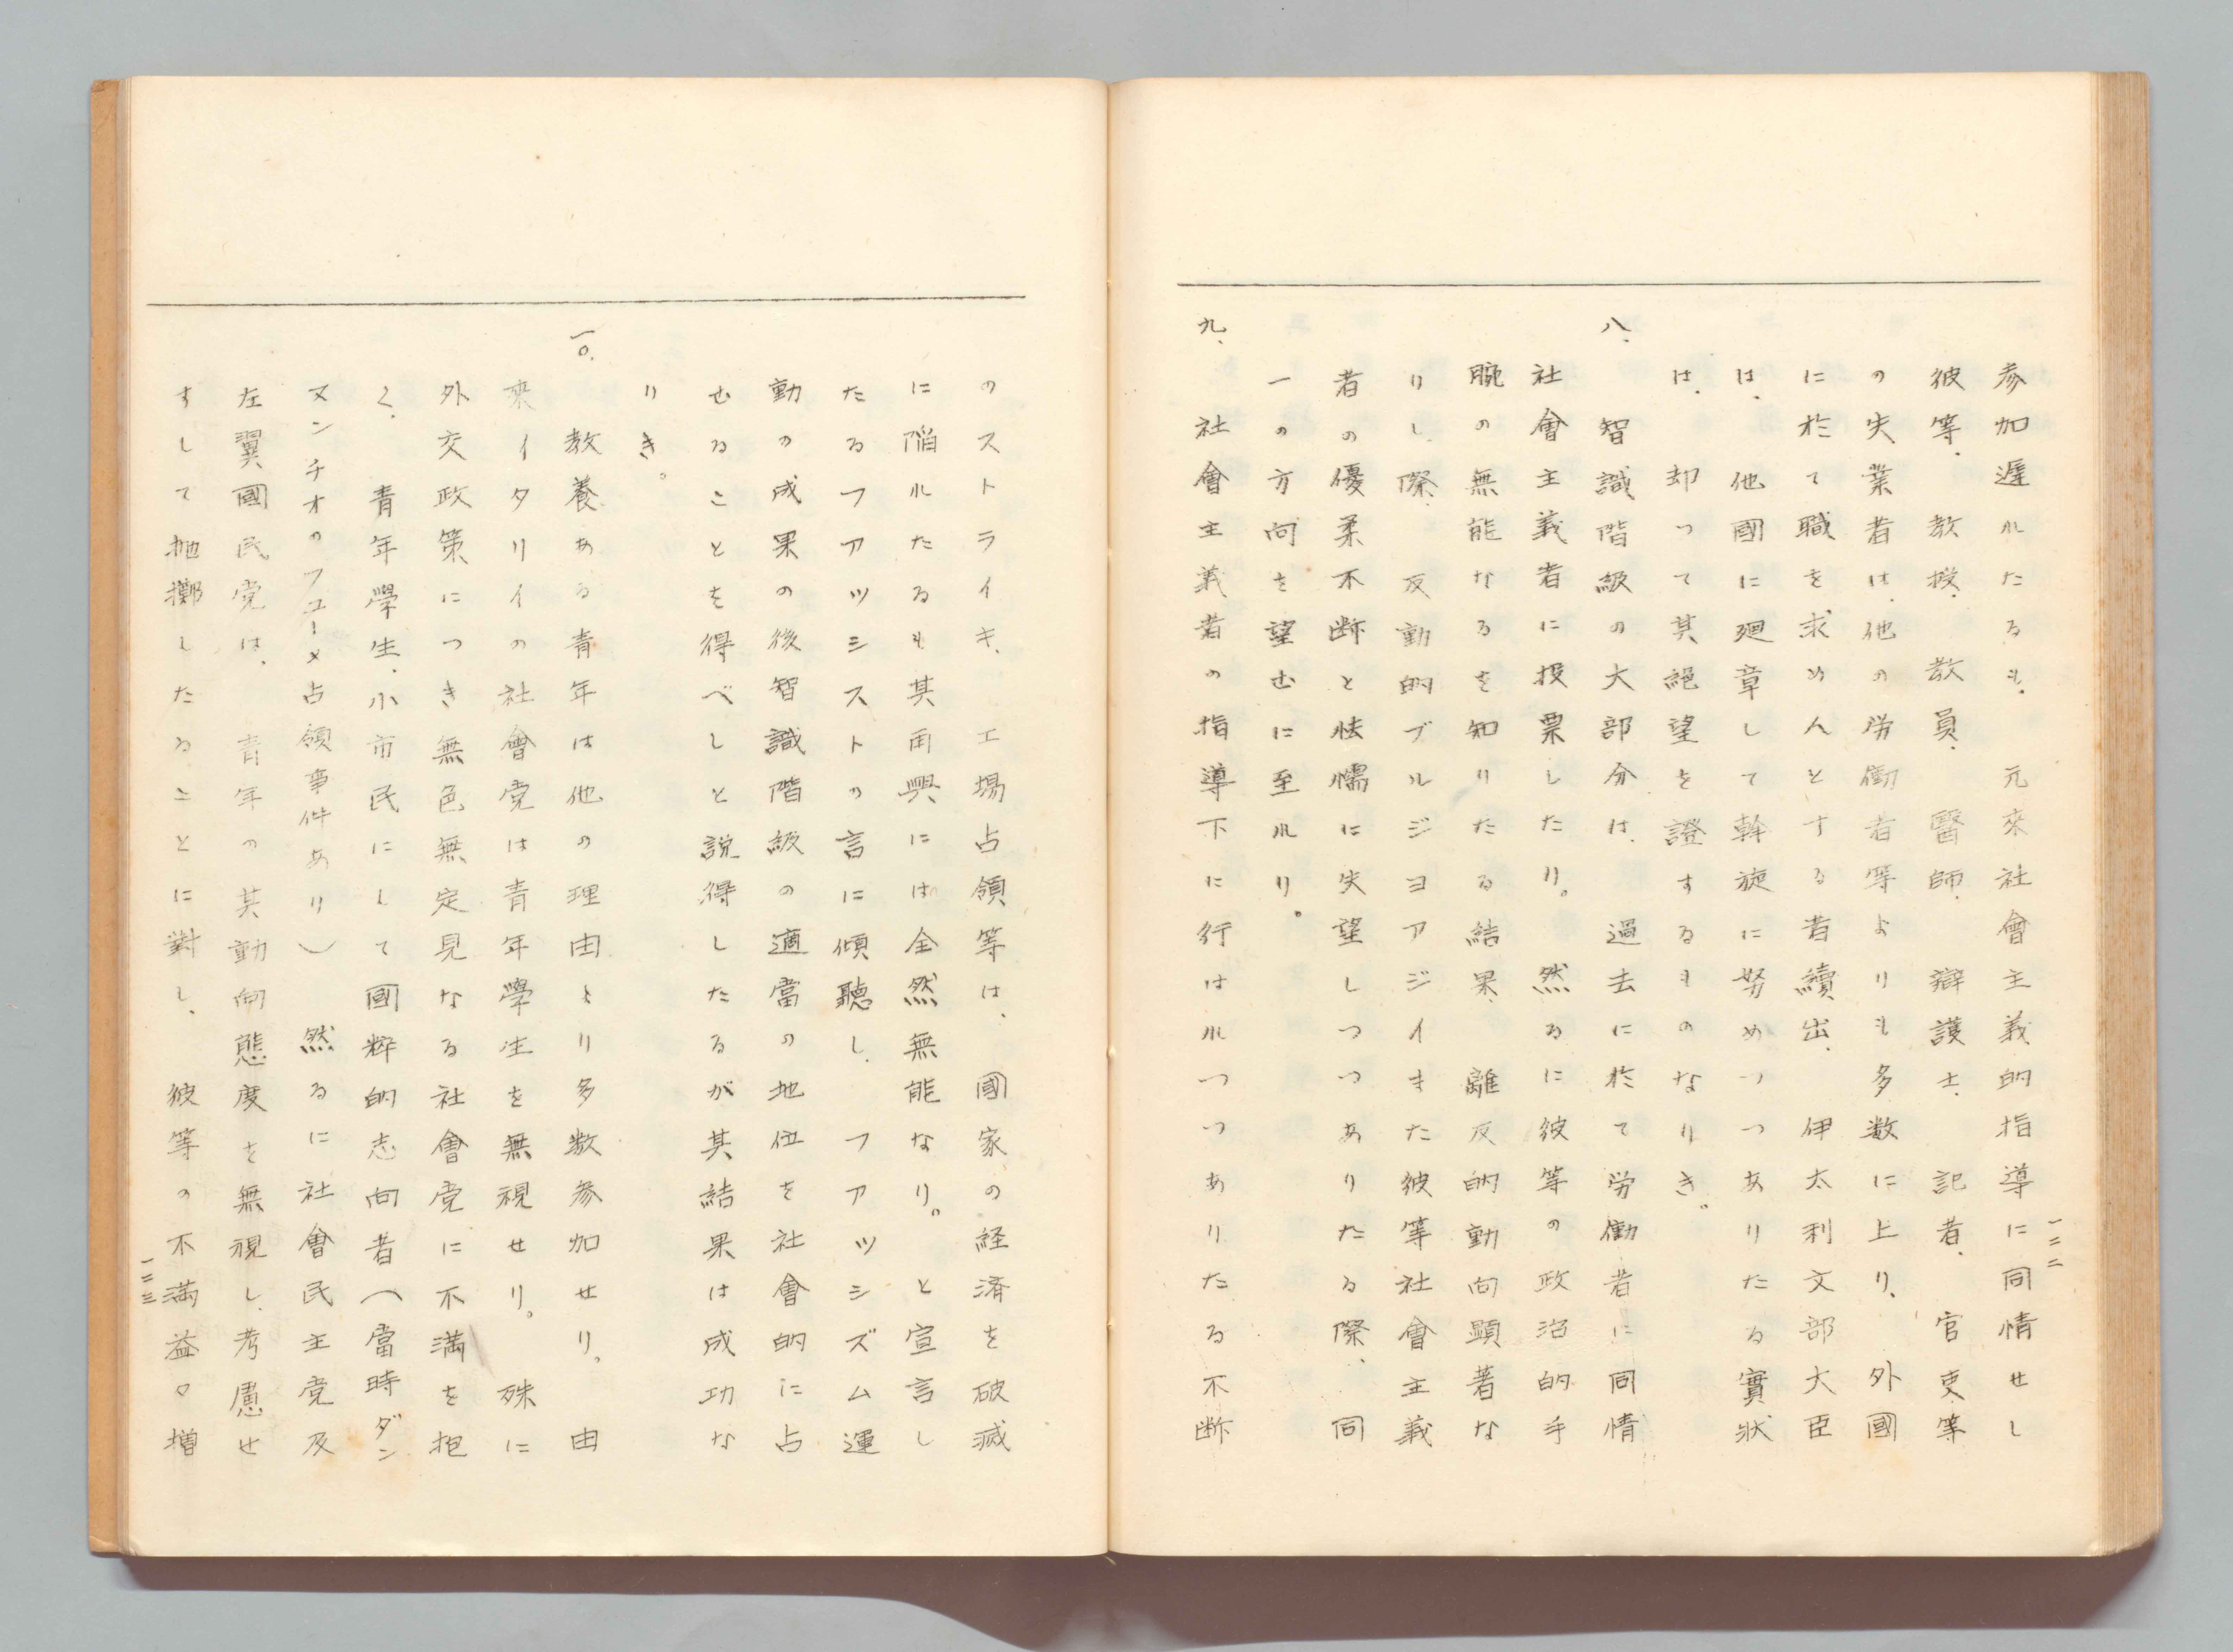 参加遅れたるも、元來社會主義的指導に同情せし
彼等、教授、教員、醫師、辯護士、記者、官吏等
の失業者は、他の労働者等よりも多数に上り、外國
に於て職を求めんとする者續出、伊太利文部大臣
は、他國に廻章して斡旋に努めつつありたる實狀
は、却つて其絕望を證するものなりき。
八、
智識階級の大部分は、過去に於て労働者に同情
社會主義者に投票したり。然るに彼等の政治的手
腕の無能なるを知りたる結果、離反的動向顕著な
りし際、反動的ブルジヨアジイまた彼等社會主義
者の優柔不断と怯懦に失望しつつありたる際、同
一の方向を望むに至れり。
九、
社會主義者の指導下に行はれつつありたる不断
一二二
のストライキ、工場占領等は、國家の経済を破滅
に陥れたるも其再興には全然無能なり。と宣言し
たるフアツシストの言に傾聽し、フアツシズム運
動の成果の後智識階級の適當の地位を社會的に占
むることを得べしと説得したるが其結果は成功な
りき。
一〇、
教養ある青年は他の理由より多数参加せり。由
來イタリイの社會党は青年學生を無視せり。殊に
外交政策につき無色無定見なる社會党に不満を抱
く、青年學生、小市民にして國粹的志向者(當時ダン
ヌンチオのフユーメ占領事件あり)然るに社會民主党及
左翼國民党は、青年の其動向態度を無視し、考慮せ
すして抛擲したることに對し、彼等の不満益々増
一二三